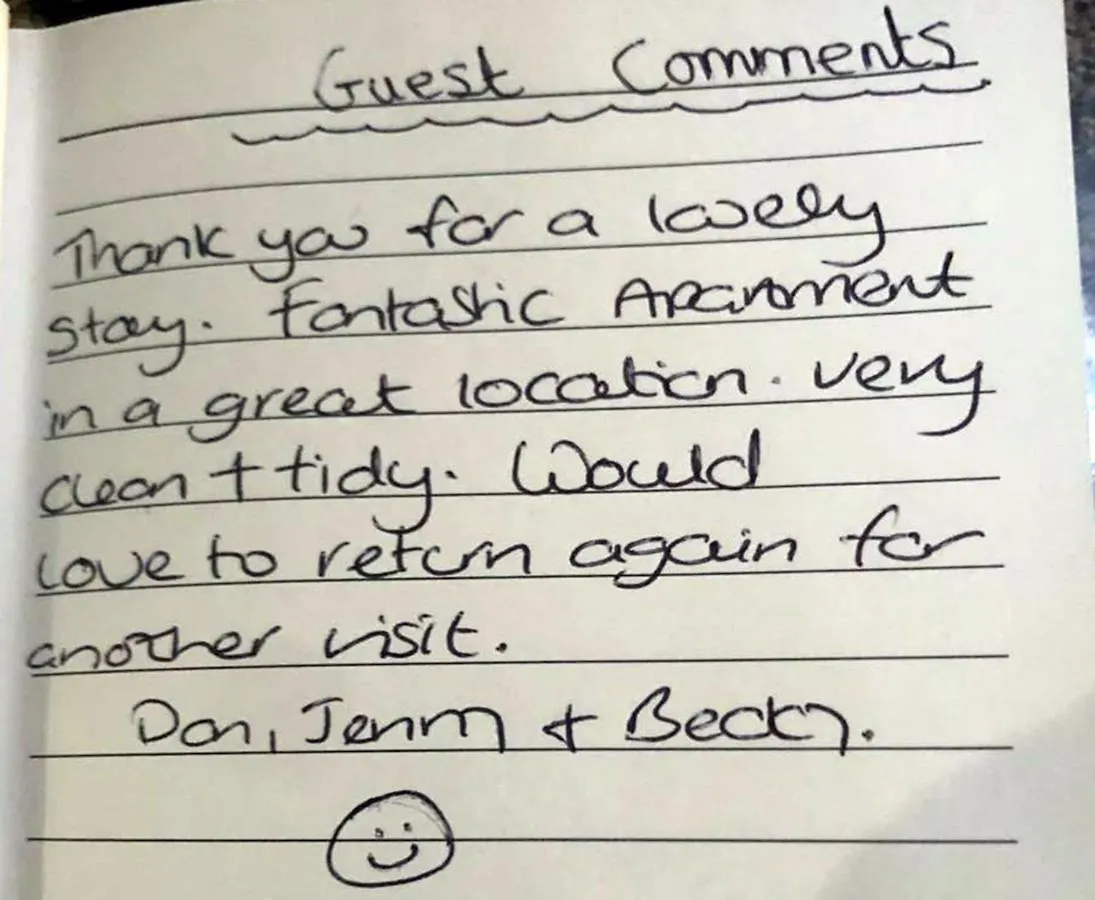 Guest Comments
Thank you for a lovely
stay. Fantastic Apartment
in a great location. very
clean + tidy. Would
love to return again for
another visit.
Dan, Jenny + Becky.